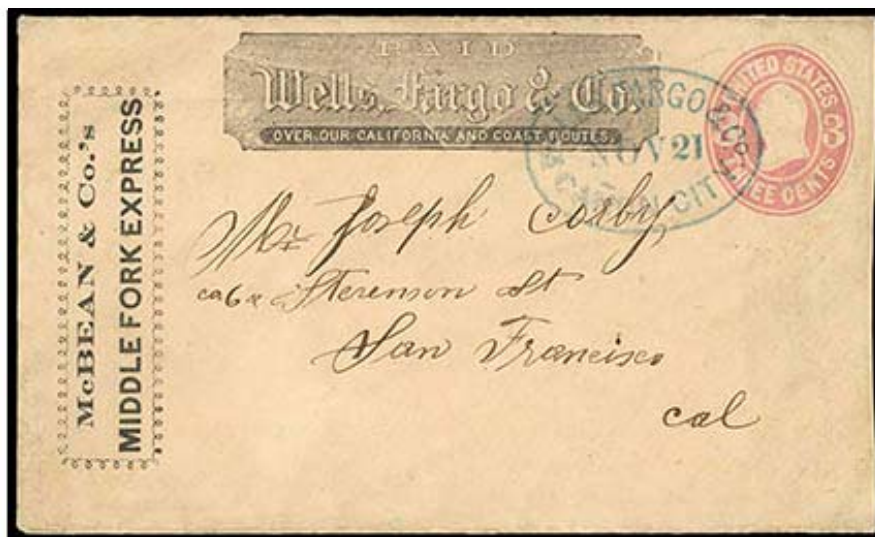 McBEAN & Co.'s
MIDDLE FORK EXPRESS
PAID
Wells, Fargo & Co.
OVER OUR CALIFORNIA AND COAST ROUTES.
FARGO & CO.
NOV 21
CITY
UNITED STATES
THREE CENTS
Mr Joseph Corby
Stevenson St
San Francisco
Cal